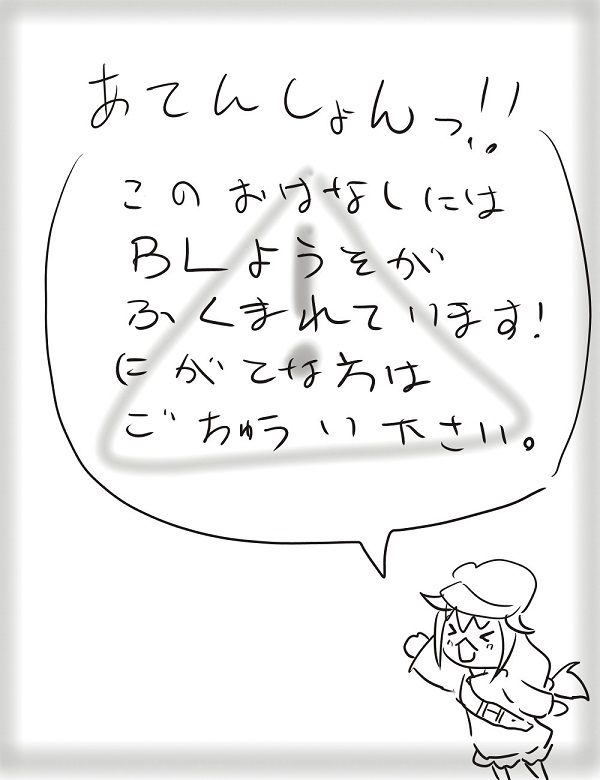 あてんしょんっ!!
このおはなしには
BLようそが
ふくまれています!
にがてな方は
ごちゅうい下さい。